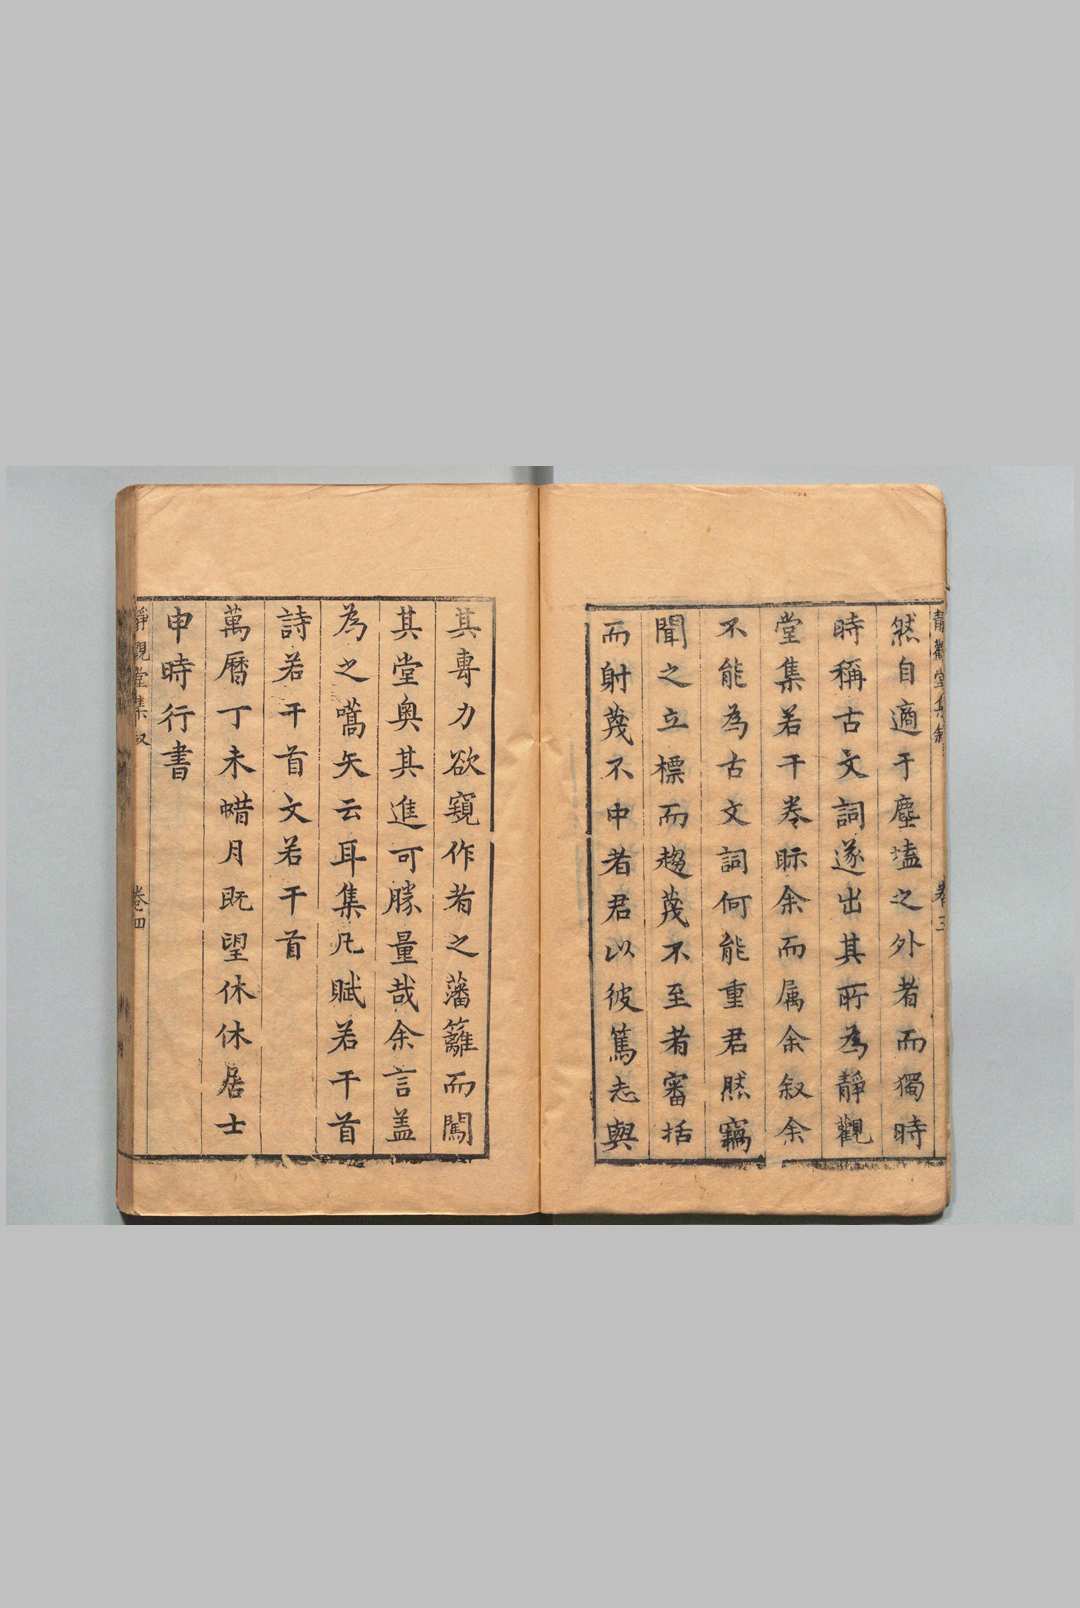 靜觀堂集叙
卷三
然自適于塵壒之外者而獨時
時稱古文詞遂出其所為靜觀
堂集若干卷眎余而属余叙余
不能為古文詞何能重君然竊
聞之立標而趨蔑不至者審括
而射蔑不中者君以彼篤志與
其專力欲窺作者之藩籬而闖
其堂奧其進可勝量哉余言盖
為之嚆矢云耳集凡賦若干首
詩若干首文若干首
萬曆丁未蜡月旣望休休居士
申時行書
靜觀堂集叙
卷四